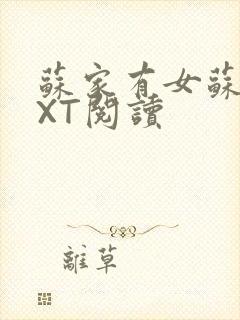 蘇家有女蘇
XT閱讀
離草